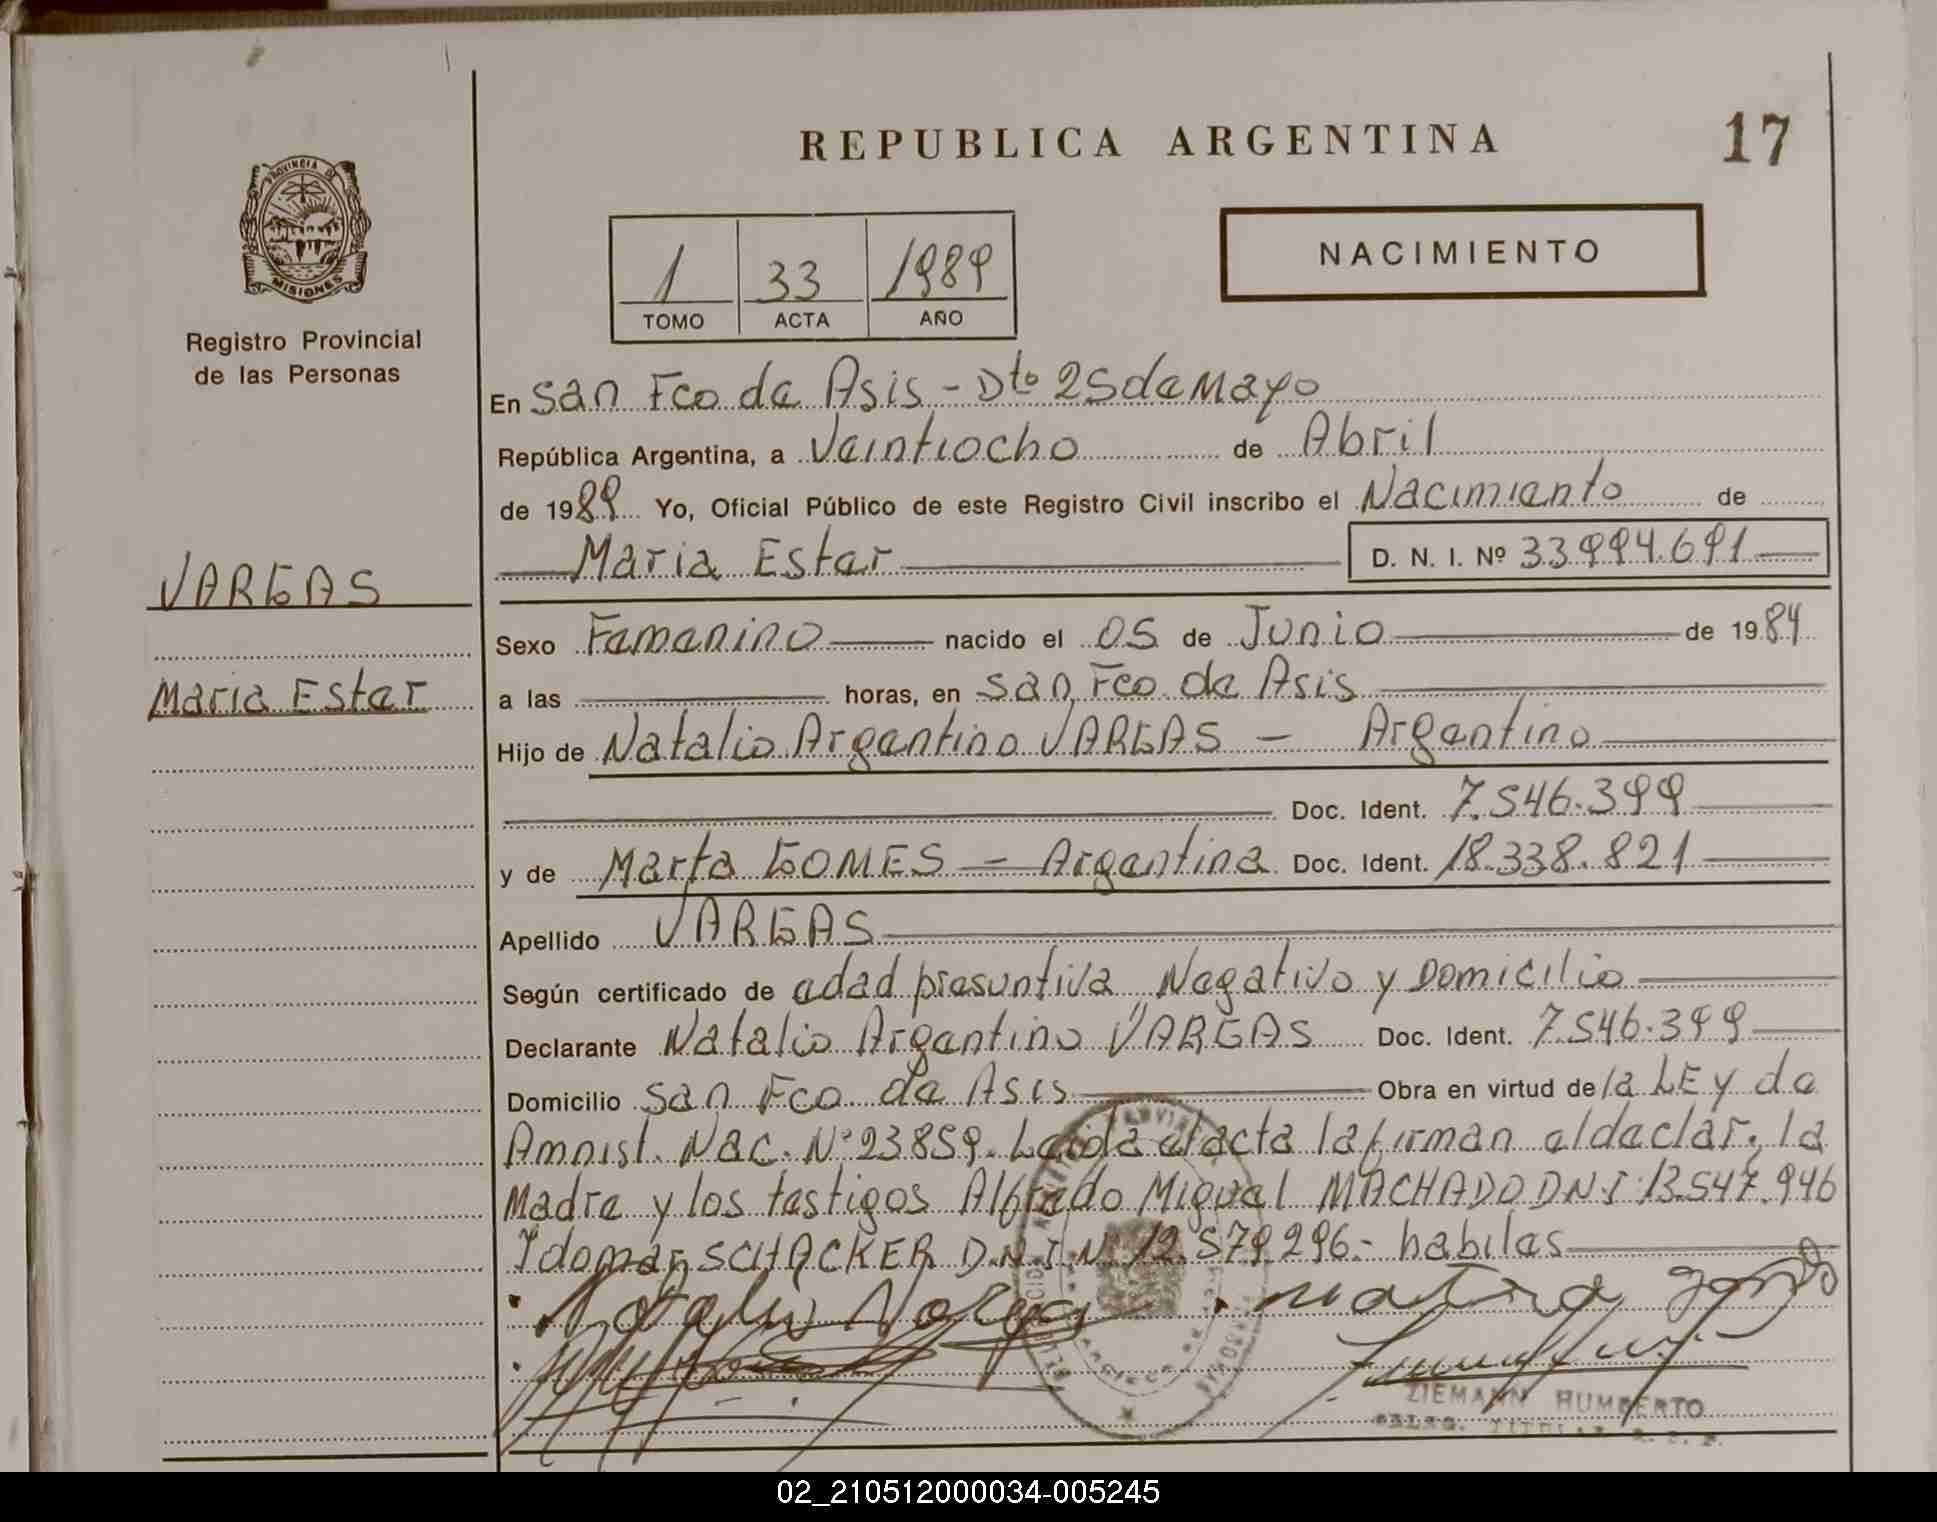 REPUBLICA ARGENTINA
17
PROVINCIA DE
MISIONES
Registro Provincial
de las Personas
1 33 1989
TOMO ACTA AÑO
NACIMIENTO
En San Fco de Asis - Dto 25 de Mayo
República Argentina, a Veintiocho de Abril
de 1989 Yo, Oficial Público de este Registro Civil inscribo el Nacimiento de
Maria Ester D. N. I. Nº 33.994.691
VARGAS
Maria Ester
Sexo Femenino nacido el 05 de Junio de 1984
a las horas, en San Fco de Asis
Hijo de Natalio Argentino VARGAS - Argentino
Doc. Ident. 7.546.399
y de Marta GOMES - Argentina Doc. Ident. 18.338.821
Apellido VARGAS
Según certificado de edad presuntiva, Negativo y Domicilio
Declarante Natalio Argentino VARGAS Doc. Ident. 7.546.399
Domicilio San Fco de Asis Obra en virtud de la LEy de
Amnist. Nac. Nº 23859. Leida el acta la firman el declar, la
Madre y los testigos Alfredo Miguel MACHADO DNI 13.547.946
Idomar SCHACKER D.N.I.N 12.579.296.- habiles
Natalio Vargas
ZIEMANN HUMBERTO
02_210512000034-005245